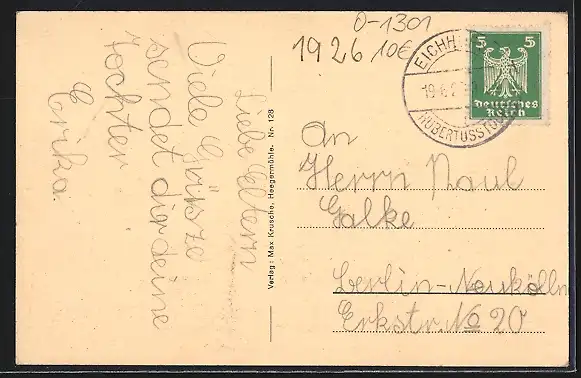 O-1301
1926 10€
5 5
Deutsches
Reich
EICHH
19.6.2
HUBERTUSSTOCK
Liebe Eltern
Viele Grüsze
sendet dir deine
tochter
Erika
Verlag: Max Krusche, Heegermühle. Nr. 128
An
Herrn Paul
Galke
Berlin-Neukölln
Erkstr. No 20